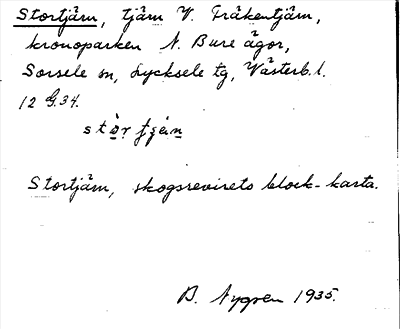 Stortjärn, tjärn V. Fräkentjärn,
kronoparken N. Bure ägor,
Sorsele sn, Lycksele tg, Västerb. l.
12 G.34.
Stortjärn, skogsrevirets block-karta.
B. Nygren 1935.